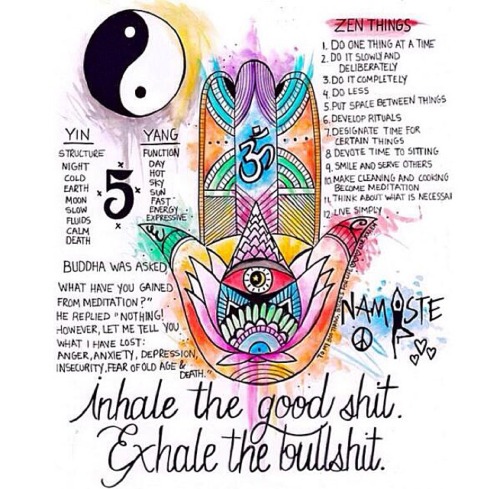 YIN
STRUCTURE
NIGHT
COLD
EARTH
MOON
SLOW
FLUIDS
CALM
DEATH
5
YANG
FUNCTION
DAY
HOT
SKY
SUN
FAST
ENERGY
EXPRESSIVE
ॐ
ZEN THINGS
1. DO ONE THING AT A TIME
2. DO IT SLOWLY AND
DELIBERATELY
3. DO IT COMPLETELY
4. DO LESS
5. PUT SPACE BETWEEN THINGS
6. DEVELOP RITUALS
7. DESIGNATE TIME FOR
CERTAIN THINGS
8. DEVOTE TIME TO SITTING
9. SMILE AND SERVE OTHERS
10. MAKE CLEANING AND COOKING
BECOME MEDITATION
11. THINK ABOUT WHAT IS NECESSAI
12. LIVE SIMPLY
BUDDHA WAS ASKED,
WHAT HAVE YOU GAINED
FROM MEDITATION?"
HE REPLIED "NOTHING!
HOWEVER, LET ME TELL YOU
WHAT I HAVE LOST:
ANGER, ANXIETY, DEPRESSION,
INSECURITY, FEAR OF OLD AGE &
DEATH."
NAMASTE
inhale the good shit.
Exhale the bullshit.